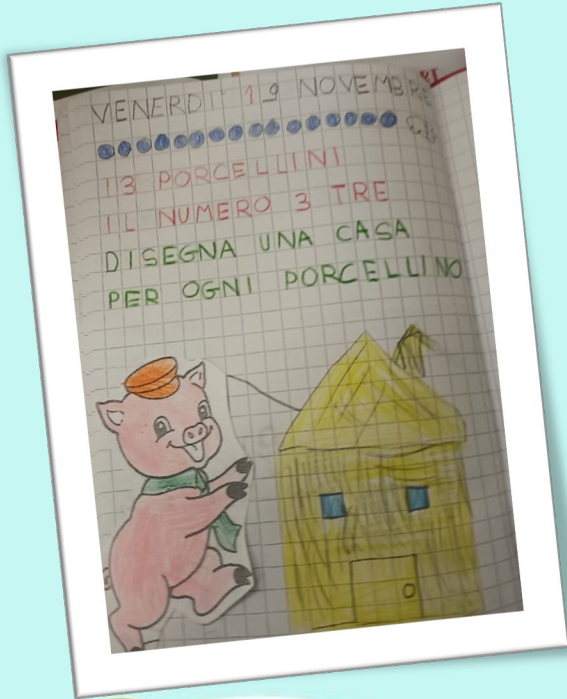 VENERDI' 19 NOVEMBRE
I 3 PORCELLINI
IL NUMERO 3 TRE
DISEGNA UNA CASA
PER OGNI PORCELLINO